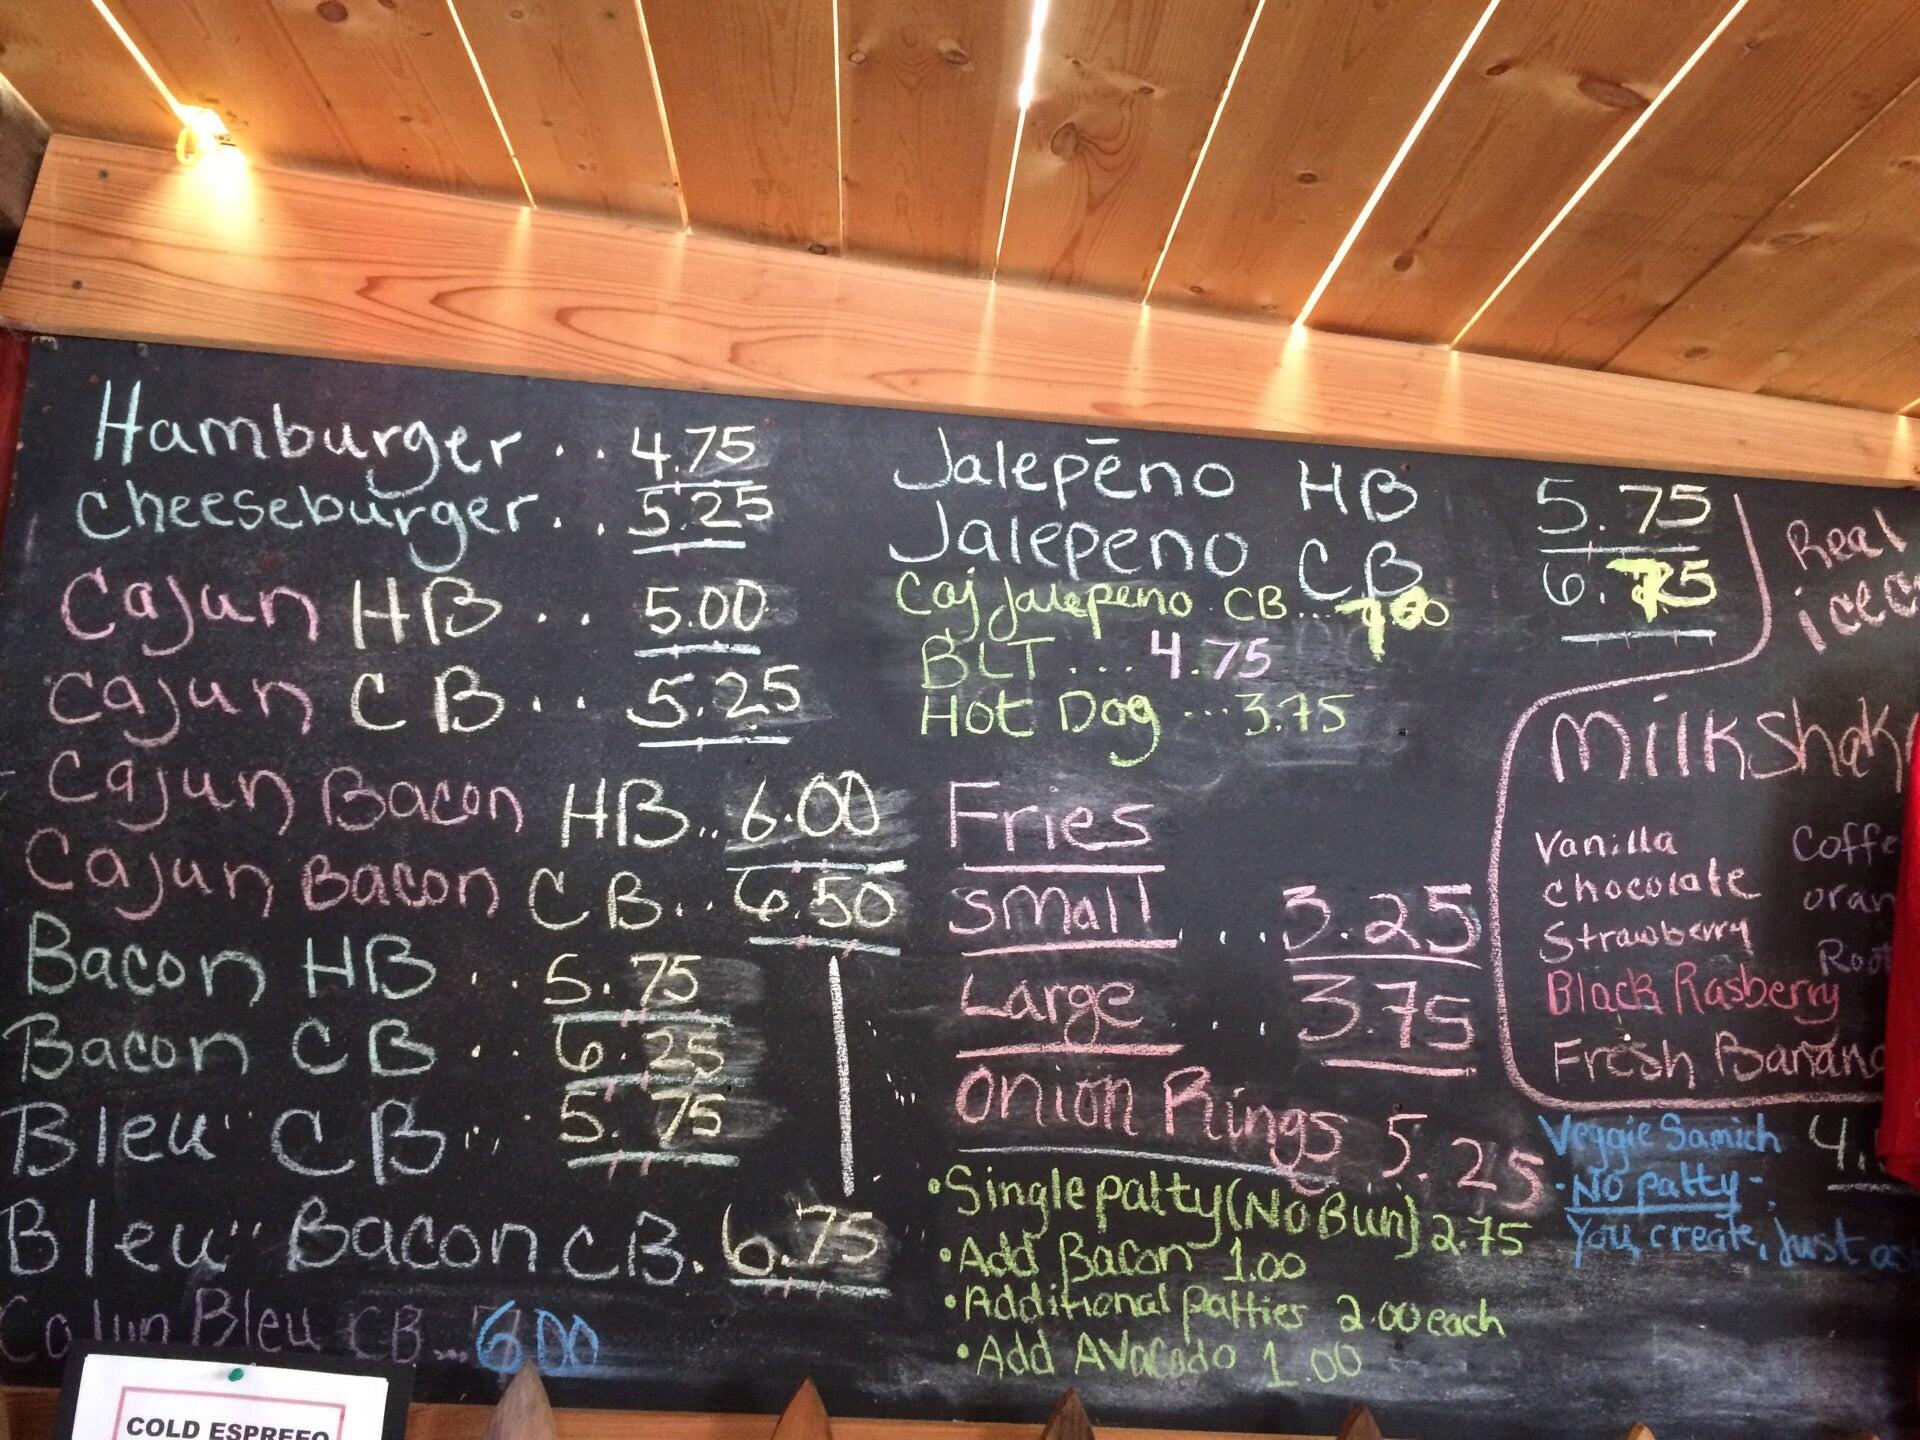 Hamburger .. 4.75
Cheeseburger .. 5.25
Cajun HB .. 5.00
Cajun CB .. 5.25
Cajun Bacon HB .. 6.00
Cajun Bacon CB .. 6.50
Bacon HB .. 5.75
Bacon CB .. 6.25
Bleu" CB .. 5.75
Bleu" Bacon CB . 6.75
Cajun Bleu CB ... 6.00
COLD ESPREFO
Jalepēno HB 5.75
Jalepeno CB 6.75
Caj Jalepeno CB ...
BLT .... 4.75
Hot Dog ... 3.75
Fries
Small ... 3.25
Large ... 3.75
Onion Rings 5.25
• Single patty (No Bun) 2.75
• Add Bacon 1.00
• Additional Patties 2.00 each
• Add AVacado 1.00
Real
Milkshak
Vanilla
chocolate
Strawberry
Black Rasberry
Fresh Banana
Coffe
oran
Root
Veggie Samich 4.
-No patty-
You, create, just as